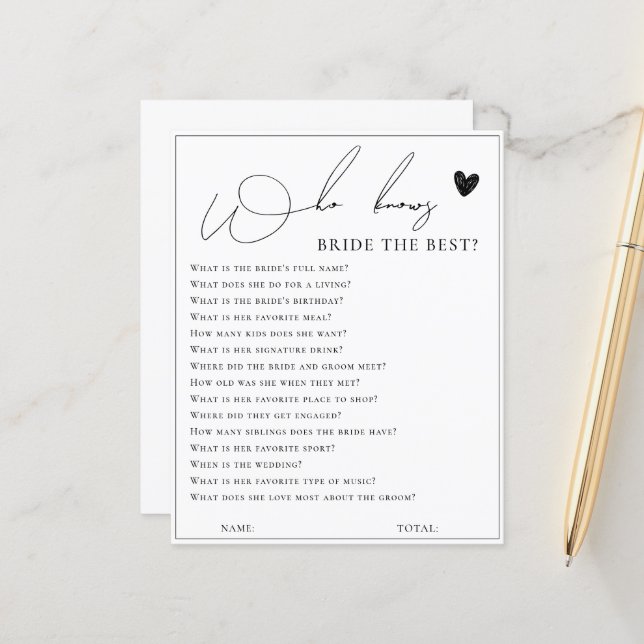 Who knows
BRIDE THE BEST?
WHAT IS THE BRIDE'S FULL NAME?
WHAT DOES SHE DO FOR A LIVING?
WHAT IS THE BRIDE'S BIRTHDAY?
WHAT IS HER FAVORITE MEAL?
HOW MANY KIDS DOES SHE WANT?
WHAT IS HER SIGNATURE DRINK?
WHERE DID THE BRIDE AND GROOM MEET?
HOW OLD WAS SHE WHEN THEY MET?
WHAT IS HER FAVORITE PLACE TO SHOP?
WHERE DID THEY GET ENGAGED?
HOW MANY SIBLINGS DOES THE BRIDE HAVE?
WHAT IS HER FAVORITE SPORT?
WHEN IS THE WEDDING?
WHAT IS HER FAVORITE TYPE OF MUSIC?
WHAT DOES SHE LOVE MOST ABOUT THE GROOM?
NAME: TOTAL: